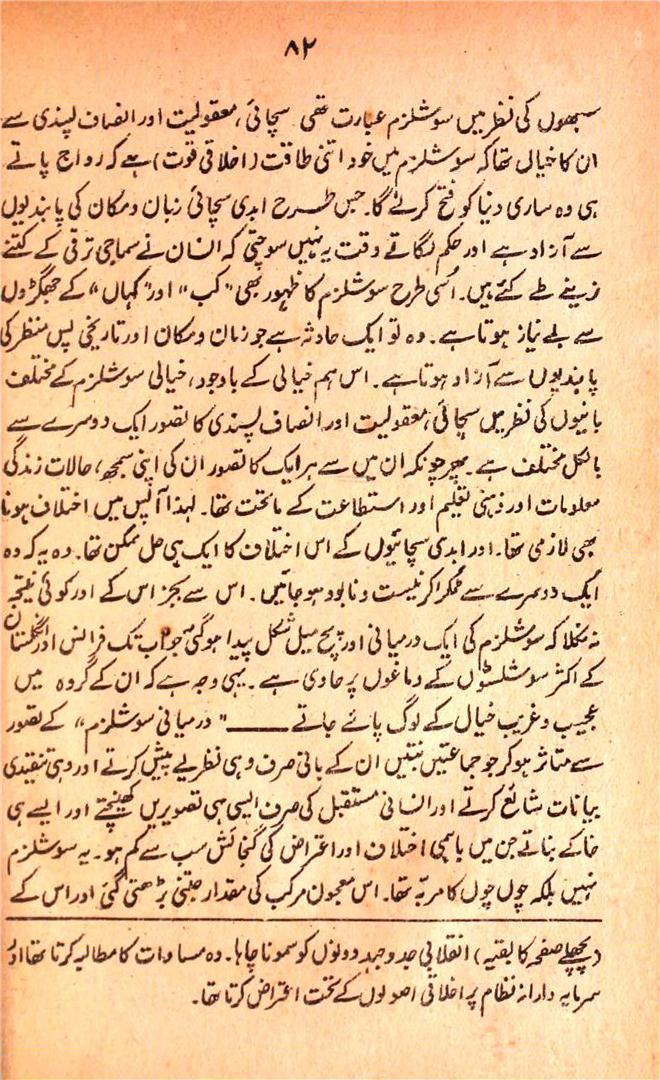 ۸۲
سبھوں کی نظر میں سوشلزم عبارت تھی سچائی، معقولیت اور انصاف پسندی سے
ان کا خیال تھا کہ سوشلزم میں خود اتنی طاقت (اخلاقی قوت) ہے کہ رواج پاتے
ہی وہ ساری دنیا کو فتح کرلے گا۔ جس طرح ابدی سچائی زبان و مکان کی پابندیوں
سے آزاد ہے اور حکم لگاتے وقت یہ نہیں سوچتی کہ انسان نے سماجی ترقی کے کتنے
زینے طے کئے ہیں۔ اُسی طرح سوشلزم کا ظہور بھی "کب" اور "کہاں" کے جھگڑوں
سے بے نیاز ہوتا ہے۔ وہ تو ایک حادثہ ہے جو زمان و مکان اور تاریخی پس منظر کی
پابندیوں سے آزاد ہوتا ہے۔ اس ہم خیالی کے باوجود، خیالی سوشلزم کے مختلف
بانیوں کی نظر میں سچائی، معقولیت اور انصاف پسندی کا تصور ایک دوسرے سے
بالکل مختلف ہے۔ پھر چونکہ ان میں سے ہر ایک کا تصور ان کی اپنی سمجھ، حالات زندگی
معلومات اور ذہنی تعلیم اور استطاعت کے ماتحت تھا۔ لہذا آپس میں اختلاف ہونا
بھی لازمی تھا۔ اور ابدی سچائیوں کے اس اختلاف کا ایک ہی حل ممکن تھا۔ وہ یہ کہ وہ
ایک دوسرے سے ٹکرا کر نیست و نابود ہو جائیں۔ اس سے بجز اس کے اور کوئی نتیجہ
نہ نکلا کہ سوشلزم کی ایک درمیانی اور پچ میل شکل پیدا ہو گئی جو اب تک فرانس اور انگلستان
کے اکثر سوشلسٹوں کے دماغوں پر حاوی ہے۔ یہی وجہ ہے کہ ان کے گروہ میں
عجیب و غریب خیال کے لوگ پائے جاتے ــــــ "درمیانی سوشلزم" کے تصور
سے متاثر ہو کر جو جماعتیں بنتیں ان کے بانی صرف وہی نظریے پیش کرتے اور وہی تنقیدی
بیانات شائع کرتے اور انسانی مستقبل کی صرف ایسی ہی تصویریں کھینچتے اور ایسے ہی
خاکے بناتے جن میں باہمی اختلاف اور اعتراض کی گنجائش سب سے کم ہو۔ یہ سوشلزم
نہیں بلکہ چوں چوں کا مربّہ تھا۔ اس معجون مرکب کی مقدار جتنی بڑھتی گئی اور اس کے
(پچھلے صفحہ کا بقیہ) انقلابی جدوجہد دونوں کو سمونا چاہا۔ وہ مساوات کا مطالبہ کرتا تھا اور
سرمایہ دارانہ نظام پر اخلاقی اصولوں کے تحت اعتراض کرتا تھا۔